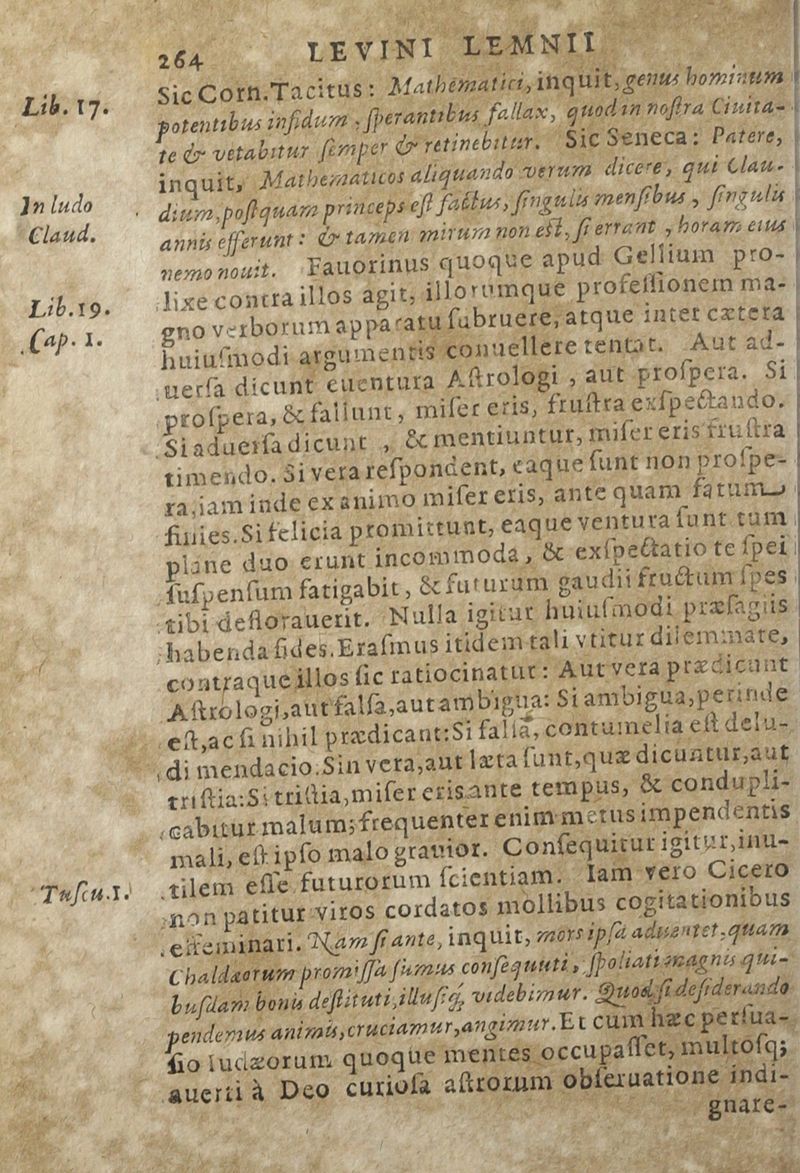 264 LEVINI LEMNII
Sic Corn. Tacitus: Mathematici, inquit, genus hominum
Lib. 17.
potentibus infidum, ſperantibus fallax, quod in noſtra Ciuita-
te & vetabitur ſemper & retinebitur. Sic Seneca: Patere,
inquit, Mathematicos aliquando verum dicere, qui Clau-
In ludo
Claud.
dium, poſtquam princeps eſt factus, ſingulis menſibus, ſingulis
annis efferunt: & tamen mirum non eſt, ſi errant, horam eius
nemo nouit. Fauorinus quoque apud Gellium pro-
Lib. 19.
Cap. 1.
lixe contra illos agit, illorumque profeſſionem ma-
gno verborum apparatu ſubruere, atque inter cætera
huiuſmodi argumentis conuellere tentat. Aut ad-
uerſa dicunt euentura Aſtrologi, aut proſpera. Si
proſpera, & fallunt, miſer eris, fruſtra exſpectando.
Si aduerſa dicunt, & mentiuntur, miſer eris fruſtra
timendo. Si vera reſpondent, eaque ſunt non proſpe-
ra, iam inde ex animo miſer eris, ante quam fatum
finies. Si felicia promittunt, eaque ventura ſunt tum
plane duo erunt incommoda, & exſpectatio te ſpei
ſuſpenſum fatigabit, & futurum gaudii fructum ſpes
tibi deflorauerit. Nulla igitur huiuſmodi præſagiis
habenda fides. Eraſmus itidem tali vtitur dilemmate,
contraque illos ſic ratiocinatur: Aut vera prædicunt
Aſtrologi, aut falſa, aut ambigua: Si ambigua, perinde
eſt, ac ſi nihil prædicant: Si falſa, contumelia eſt delu-
di mendacio. Sin vera, aut læta ſunt, quæ dicuntur, aut
triſtia: Si triſtia, miſer eris ante tempus, & condupli-
cabitur malum; frequenter enim metus impendentis
mali, eſt ipſo malo grauior. Conſequitur igitur, inu-
tilem eſſe futurorum ſcientiam. Iam vero Cicero
Tuſcu. 1.
non patitur viros cordatos mollibus cogitationibus
effeminari. Nam ſi ante, inquit, mors ipſa aduentet, quam
Chaldæorum promiſſa ſumus conſequuti, ſpoliati magnis qui-
buſdam bonis deſtituti, illuſiq; videbimur. Quod ſi deſiderando
pendemus animis, cruciamur, angimur. Et cum hæc perſua-
ſio Iudæorum quoque mentes occupaſſet, multoſq;
auerti à Deo curioſa aſtrorum obſeruatione indi-
gnare-